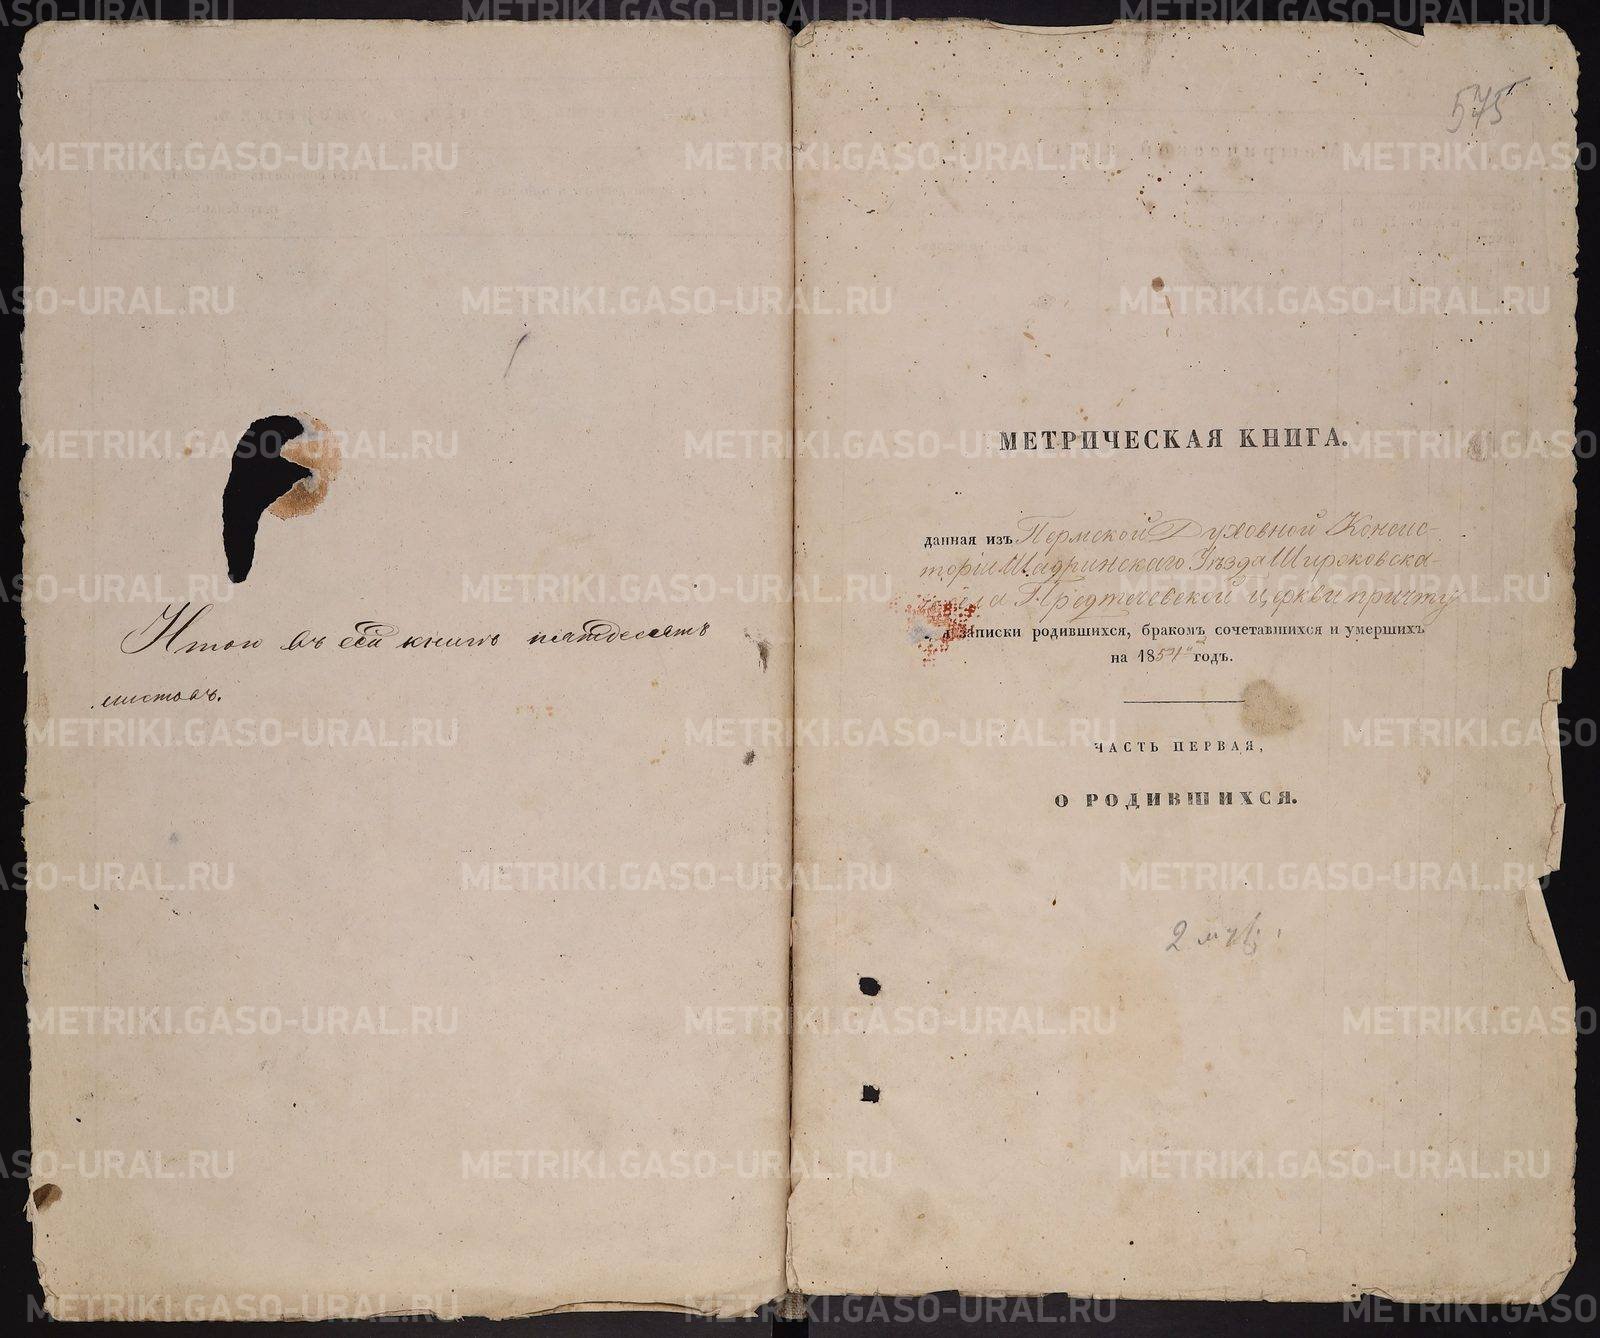 Итого въ сей книгѣ пятдесятъ
листовъ.
575
МЕТРИЧЕСКАЯ КНИГА.
данная изъ Пермской Духовной Консис-
торіи Шадринскаго Уѣзда Ширяковска-
села Предтечевской церкви причту
записки родившихся, бракомъ сочетавшихся и умершихъ
на 1854 годъ.
ЧАСТЬ ПЕРВАЯ,
О РОДИВШИХСЯ.
2
METRIKI.GASO-URAL.RU